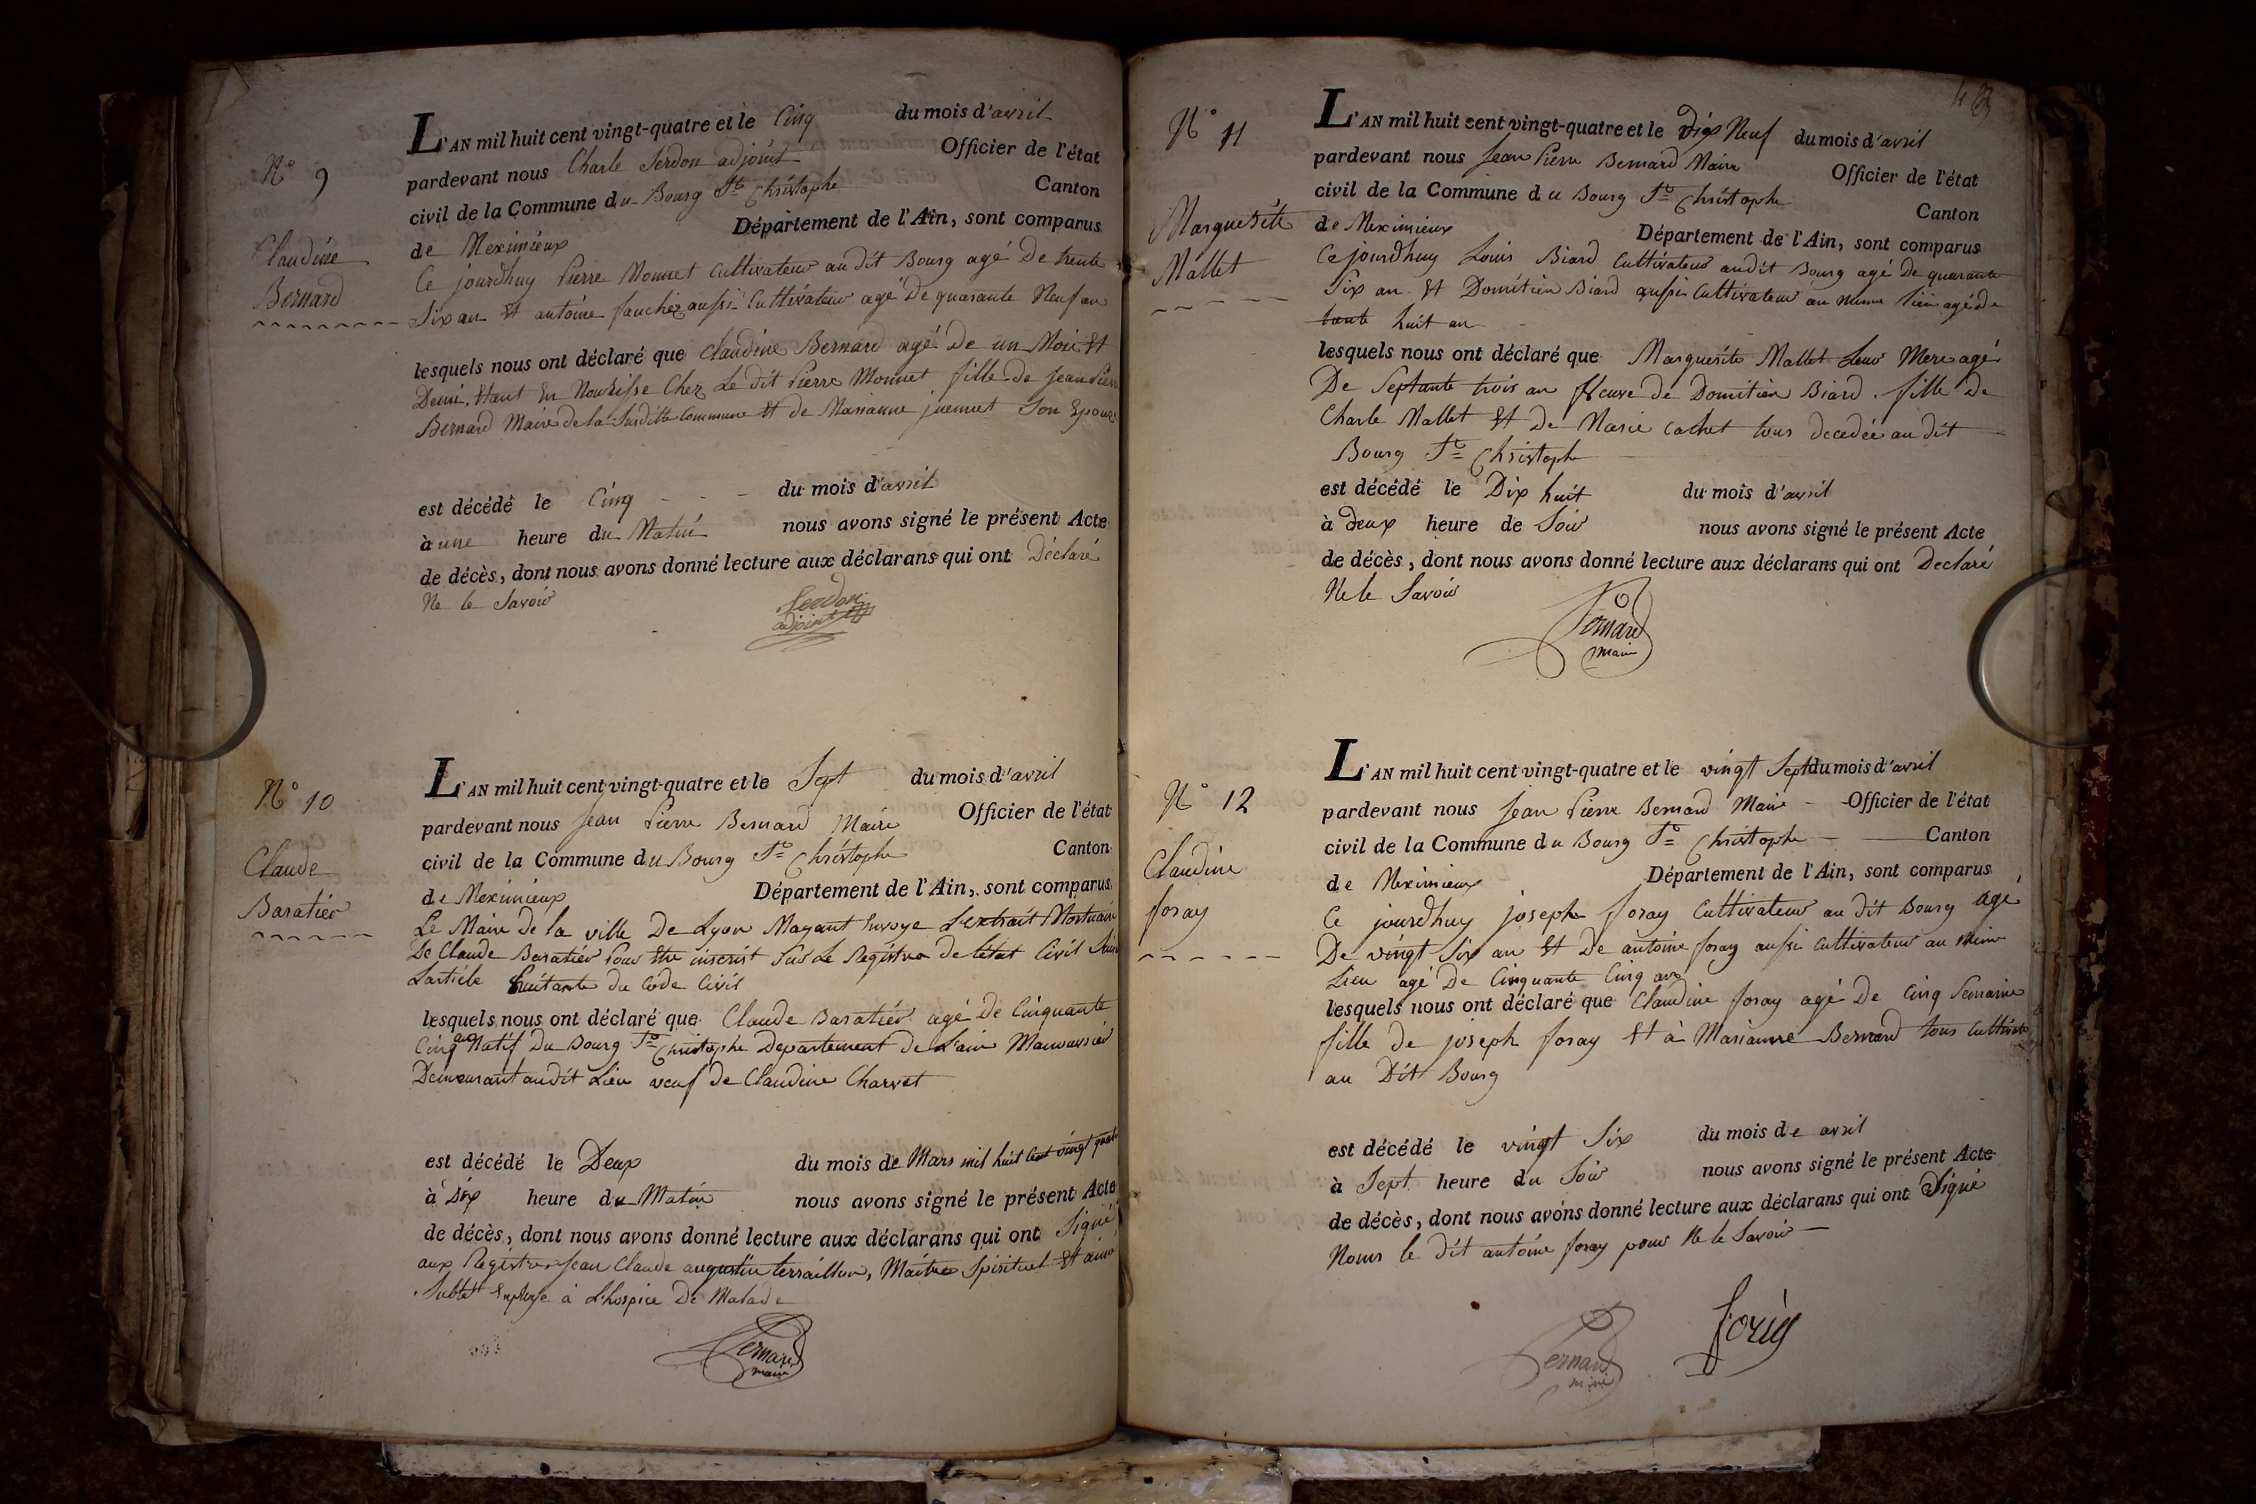 N° 9
Claudine
Bernard
L'AN mil huit cent vingt-quatre et le Cinq du mois d'avril
pardevant nous Charle Serdon adjoint Officier de l'état
civil de la Commune du Bourg St Christophe Canton
de Meximieux Département de l'Ain, sont comparus
Ce jourdhuy Pierre Monnet Cultivateur au dit Bourg agé De trente
Six an Et antoine fauchez aussi Cultivateur agé De quarante Neuf an
lesquels nous ont déclaré que Claudine Bernard agé De un Mois Et
Demi. Etant En Nourisse Chez Le dit Pierre Monnet fille de Jean Pierre
Bernard Maire de la Susditte Commune Et de Marianne juennet Son Epouse
est décédé le Cinq du mois d'avril
à une heure du Matin nous avons signé le présent Acte
de décès, dont nous avons donné lecture aux déclarans qui ont Déclaré
Ne le Savoir
Serdon
adjoint
N° 10
Claude
Baratier
L'AN mil huit cent vingt-quatre et le Sept du mois d'avril
pardevant nous Jean Pierre Bernard Maire Officier de l'état
civil de la Commune du Bourg St Christophe Canton
de Meximieux Département de l'Ain, sont comparus
Le Maire de la ville De Lyon Mayant Envoye L'extrait Mortuaire
De Claude Baratier Pour Etre inscrit Sur Le Régistre de létat Civil
Lartiele huitante du Code Civil
lesquels nous ont déclaré que Claude Baratier agé De Cinquante
Cinq an Natif Du Bourg St Christophe Departement De L'ain
Demeurant au dit Lieu veuf de Claudine Charvet
est décédé le Deux du mois de Mars mil huit Cent vingt quatre
à Dix heure du Matin nous avons signé le présent Acte
de décès, dont nous avons donné lecture aux déclarans qui ont Signé
aux Régistre Jean Claude augustin terraillon, Maitre Spirituel Et
Employe à L'hospice De Malade
Bernard
maire
N° 11
Marguerite
Mallet
L'AN mil huit cent vingt-quatre et le Dix Neuf du mois d'avril
pardevant nous Jean Pierre Bernard Maire Officier de l'état
civil de la Commune du Bourg St Christophe Canton
de Meximieux Département de l'Ain, sont comparus
Ce jourdhuy Louis Biard Cultivateur au dit Bourg agé De quarante
Six an Et Domitien Biard aussi Cultivateur au meme lieu agé de
trente huit an
lesquels nous ont déclaré que Marguerite Mallet Leur Mere agé
De Septante trois an Veuve de Domitien Biard. fille De
Charle Mallet Et De Marie Cachet tous decedée au dit
Bourg St Christophe
est décédé le Dix huit du mois d'avril
à deux heure de Soir nous avons signé le présent Acte
de décès, dont nous avons donné lecture aux déclarans qui ont Declaré
Ne le Savoir
Bernard
maire
N° 12
Claudine
foray
L'AN mil huit cent vingt-quatre et le vingt Sept du mois d'avril
pardevant nous Jean Pierre Bernard Maire Officier de l'état
civil de la Commune du Bourg St Christophe Canton
de Meximieux Département de l'Ain, sont comparus
Ce jourdhuy joseph foray Cultivateur au dit Bourg agé
De vingt Six an Et De antoine foray aussi Cultivateur au même
Lieu agé De Cinquante Cinq an
lesquels nous ont déclaré que Claudine foray agé De Cinq Semaine
fille de joseph foray Et à Marianne Bernard tous
au Dit Bourg
est décédé le vingt Six du mois de avril
à Sept heure du Soir nous avons signé le présent Acte
de décès, dont nous avons donné lecture aux déclarans qui ont Signé
Nonis le dit antoine foray pour Ne le Savoir
Bernard
maire